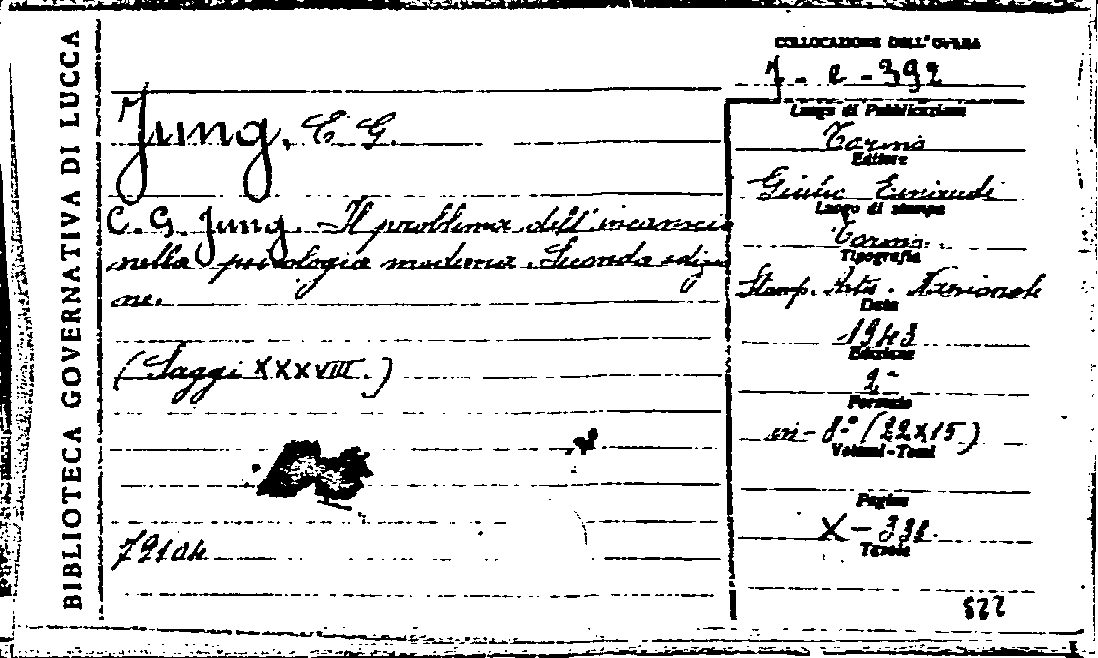 BIBLIOTECA GOVERNATIVA DI LUCCA
Jung, C G.
C. G. Jung. Il problema dell'inconscio
nella psicologia moderna. Seconda edizio
ne.
(Saggi XXXVIII.)
COLLOCAZIONE DELL'OPERA
Luogo di Pubblicazione
Torino
Editore
Giulio Einaudi
Luogo di stampa
Torino.
Tipografia
Stamp. Artis. Nazionale
Data
1943
Edizione
2ª
Formato
in-8º (22x15)
Volumi-Tomi
Pagine
Tavole